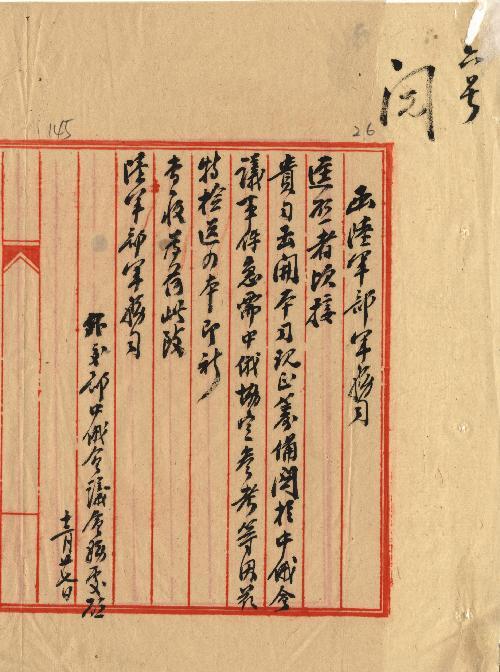 六号
阅
26
145
函陆军部军务司
迳启者顷接
贵司函开本司现正筹备关于中俄会
议事件急需中俄协定参考等因兹
特检送四本即祈
查收为荷此致
陆军部军务司
外交部中俄会议会务处启
十二月廿七日